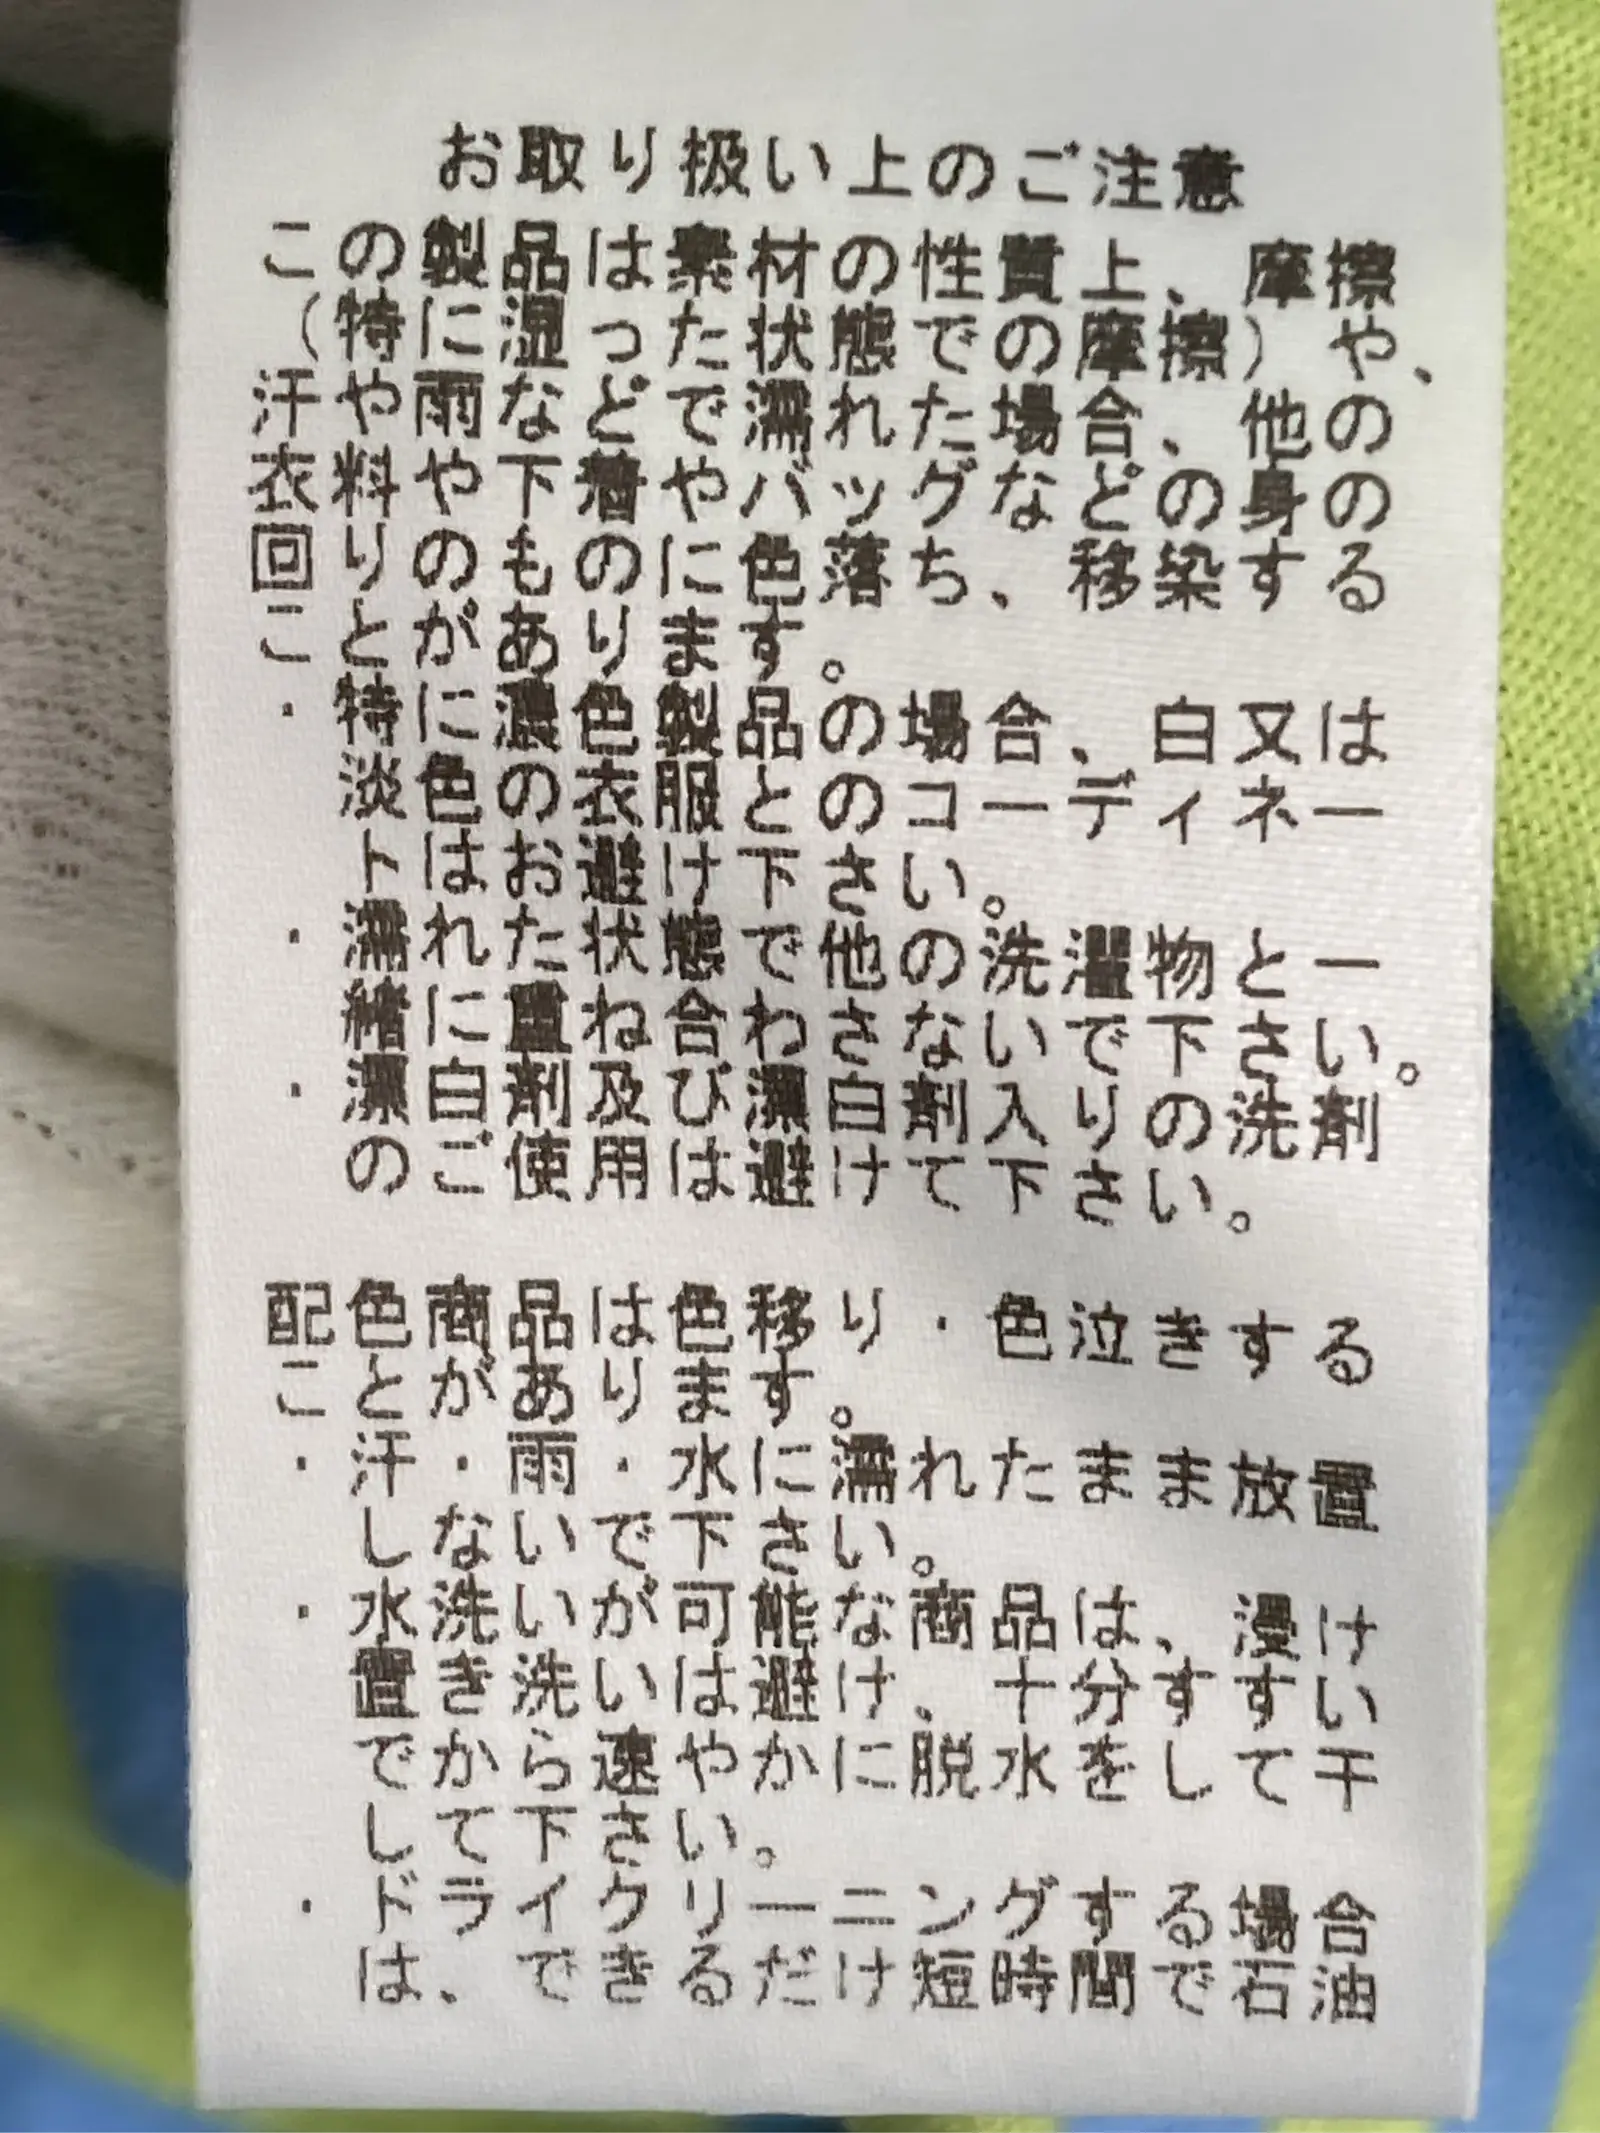 お取り扱い上のご注意
この製品は素材の性質上、摩擦
(特に湿った状態での摩擦)や、
汗や雨などで濡れた場合、他の
衣料や下着やバッグなどの身の
回りのものに色落ち、移染する
ことがあります。
・特に濃色製品の場合、白又は
淡色の衣服とのコーディネー
トはお避け下さい。
・濡れた状態で他の洗濯物と一
緒に重ね合わさないで下さい。
・漂白剤及び漂白剤入りの洗剤
のご使用は避けて下さい。
配色商品は色移り・色泣きする
ことがあります。
・汗・雨・水に濡れたまま放置
しないで下さい。
・水洗いが可能な商品は、浸け
置き洗いは避け、十分すすい
でから速やかに脱水をして干
して下さい。
・ドライクリーニングする場合
は、できるだけ短時間で石油